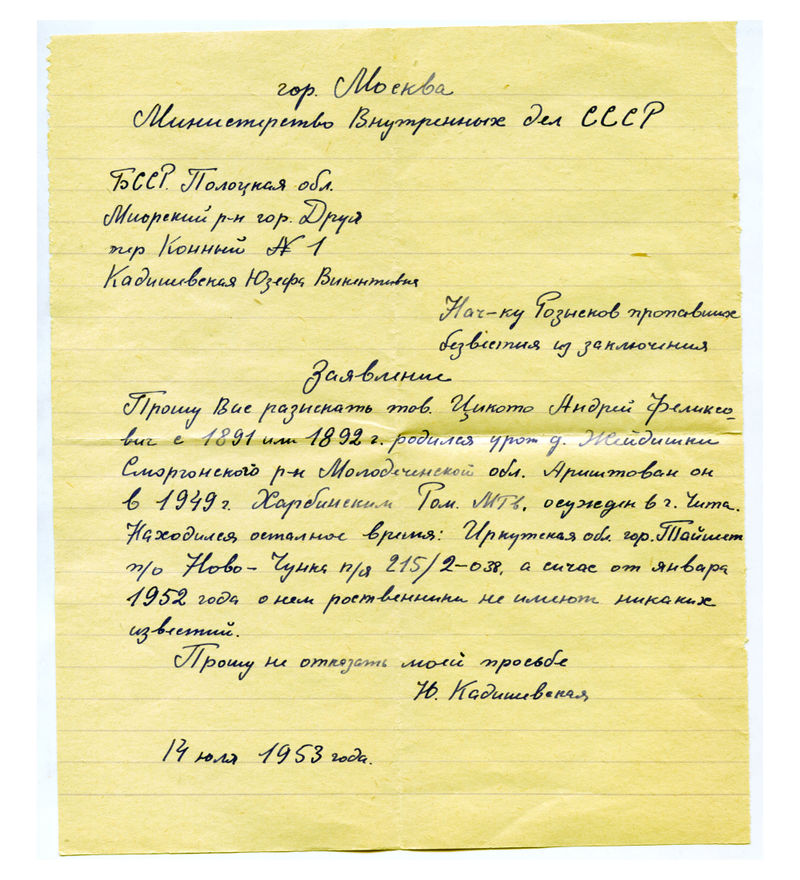 гор. Москва
Министерство Внутренных дел СССР
БССР. Полоцкая обл.
Миорский р-н гор. Друя
пер Конный № 1
Кадишевская Юзефа Викентивна
Нач-ку Розысков пропавших
безвiстия из заключения
Заявление
Прошу Вас разискать тов. Цикото Андрей Феликсо-
вич с 1891 или 1892 г. родился урож д. Жейдишки
Сморгонского р-н Молодечинской обл. Ариштован он
в 1949 г. Харбинским Гом. МГв, осужден в г. Чита.
Находился осталное время: Иркутская обл. гор. Тайшет
п/о Ново-Чунка п/я 215/2-038, а сичас от января
1952 года о нем роственники не имеют никаких
известий.
Прошу не отказать моей просьбе
Ю. Кадишевская
14 юля 1953 года.